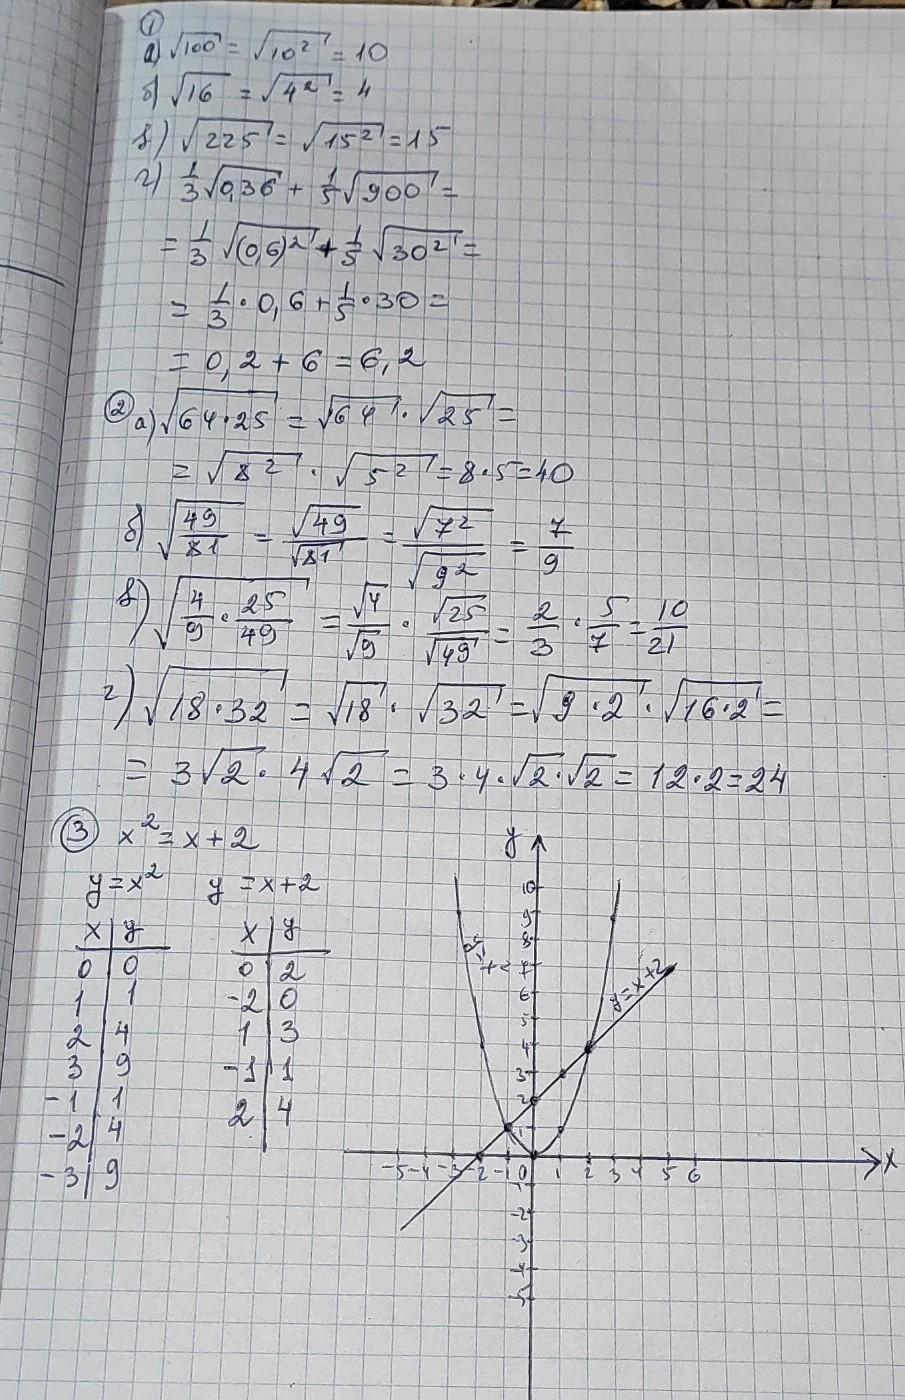 ①
а) √100 = √10² = 10
б) √16 = √4² = 4
в) √225 = √15² = 15
г) 1/3 √0,36 + 1/5 √900 =
= 1/3 √(0,6)² + 1/5 √30² =
= 1/3 · 0,6 + 1/5 · 30 =
= 0,2 + 6 = 6,2
② а) √64·25 = √64 · √25 =
= √8² · √5² = 8·5=40
б) √49/81 = √49/√81 = √7²/√9² = 7/9
в) √4/9 · 25/49 = √4/√9 · √25/√49 = 2/3 · 5/7 = 10/21
г) √18·32 = √18 · √32 = √9·2 · √16·2 =
= 3√2 · 4√2 = 3·4·√2·√2 = 12·2=24
③ x² = x+2
y=x² y=x+2
x y
0 0
1 1
2 4
3 9
-1 1
-2 4
-3 9
x y
0 2
-2 0
1 3
-1 1
2 4
y
10
9
8
7
6
5
4
3
2
1
y=x+2
-5 -4 -3 -2 -1 0 1 2 3 4 5 6 x
-1
-2
-3
-4
-5